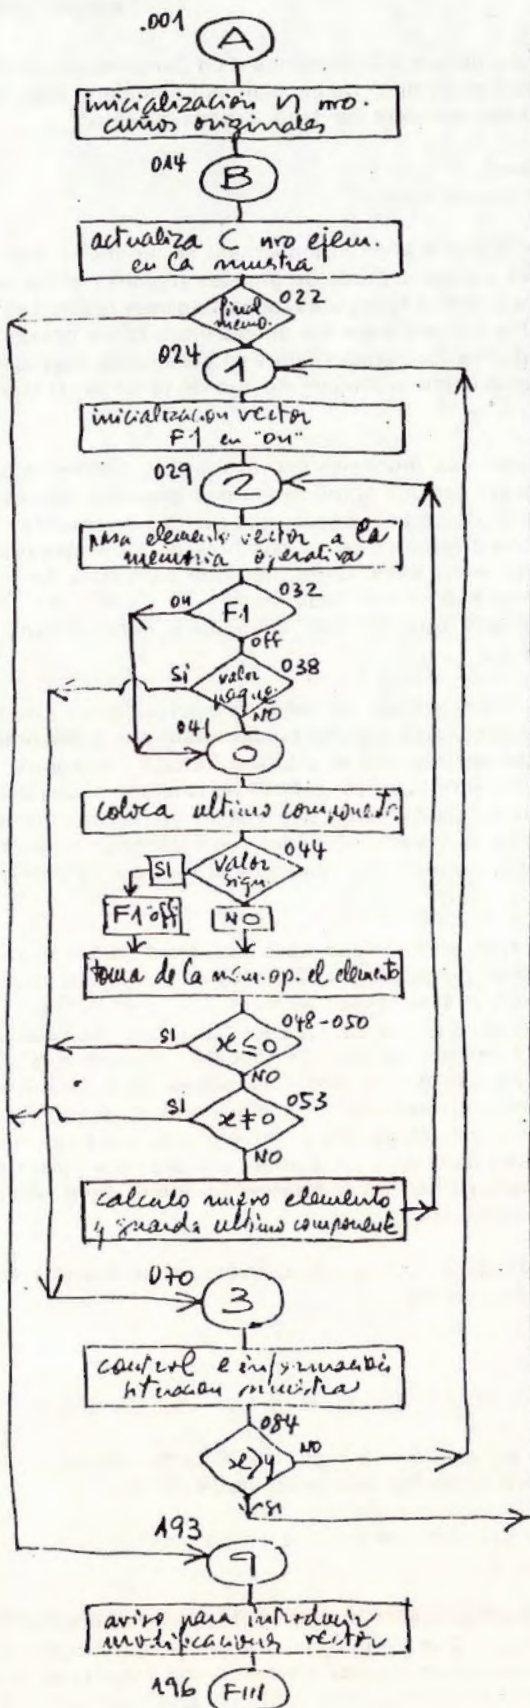 .001
A
inicialización n nro.
cuños originales
014
B
actualiza C nro ejem.
en la muestra
022
final
memo.
024
1
inicialización vector
F1 en "on"
029
2
pasa elemento vector a la
memoria operativa
032
on
F1
off
038
SI
valor
peque.
NO
041
0
coloca ultimo component.
044
SI
valor
sign.
F1 off
NO
toma de la mem. op. el elemento
048-050
SI
x≤0
NO
053
SI
x≠0
NO
calculo nuevo elemento
y guarda ultimo componente
070
3
control e información
situacion muestra
084
x>y
NO
SI
193
9
aviso para introducir
modificaciones vector
196
FIII